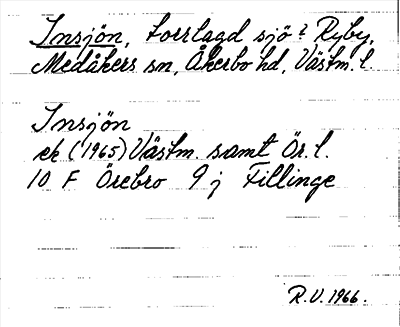 Insjön, torrlagd sjö? Ryby,
Medåkers sn, Åkerbo hd, Västm. l.
Insjön
ek (1965) Västm. samt Ör. l.
10 F Örebro 9 j Fillinge
R.V. 1966.